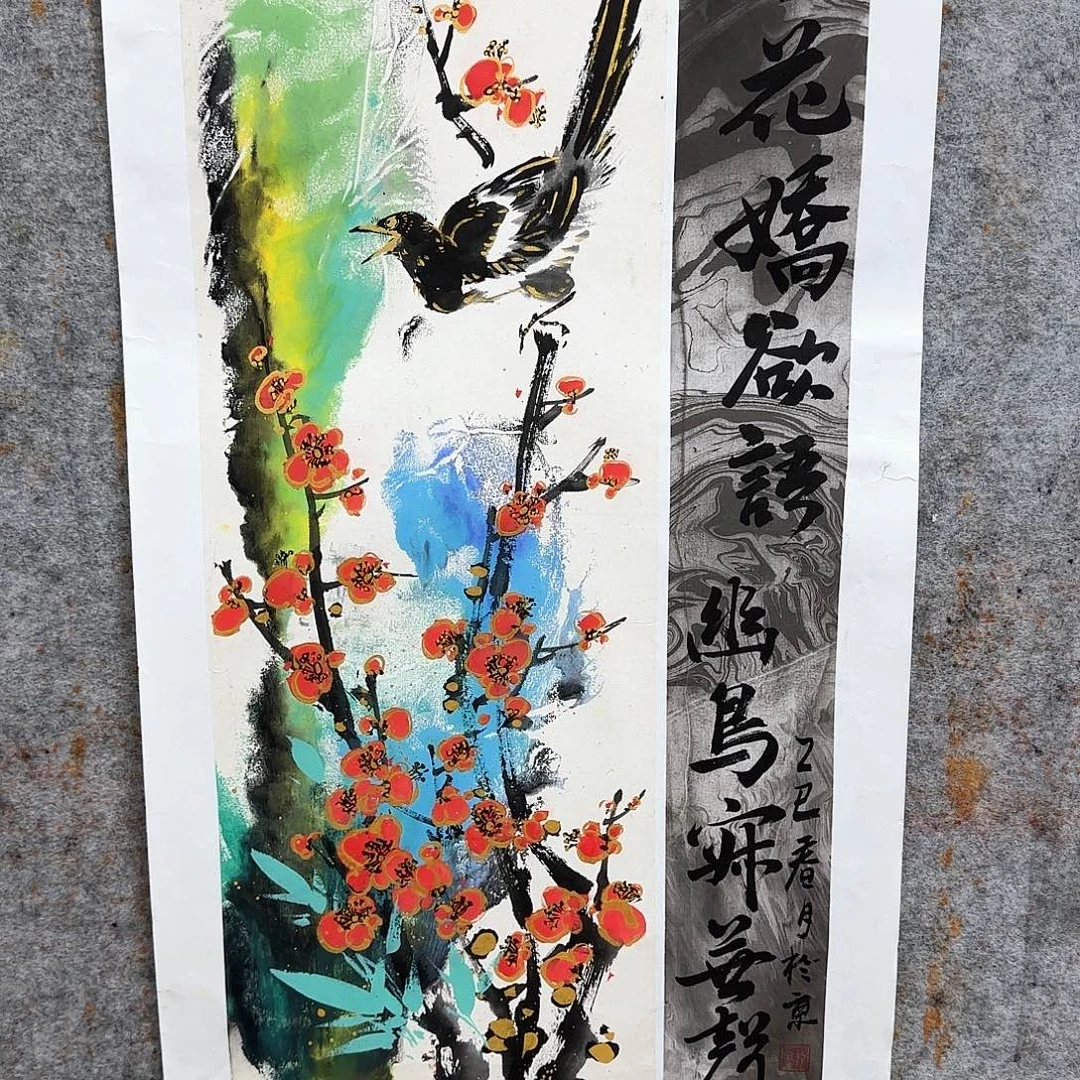 花嬌欲語幽鳥寂無聲
乙巳春月於京